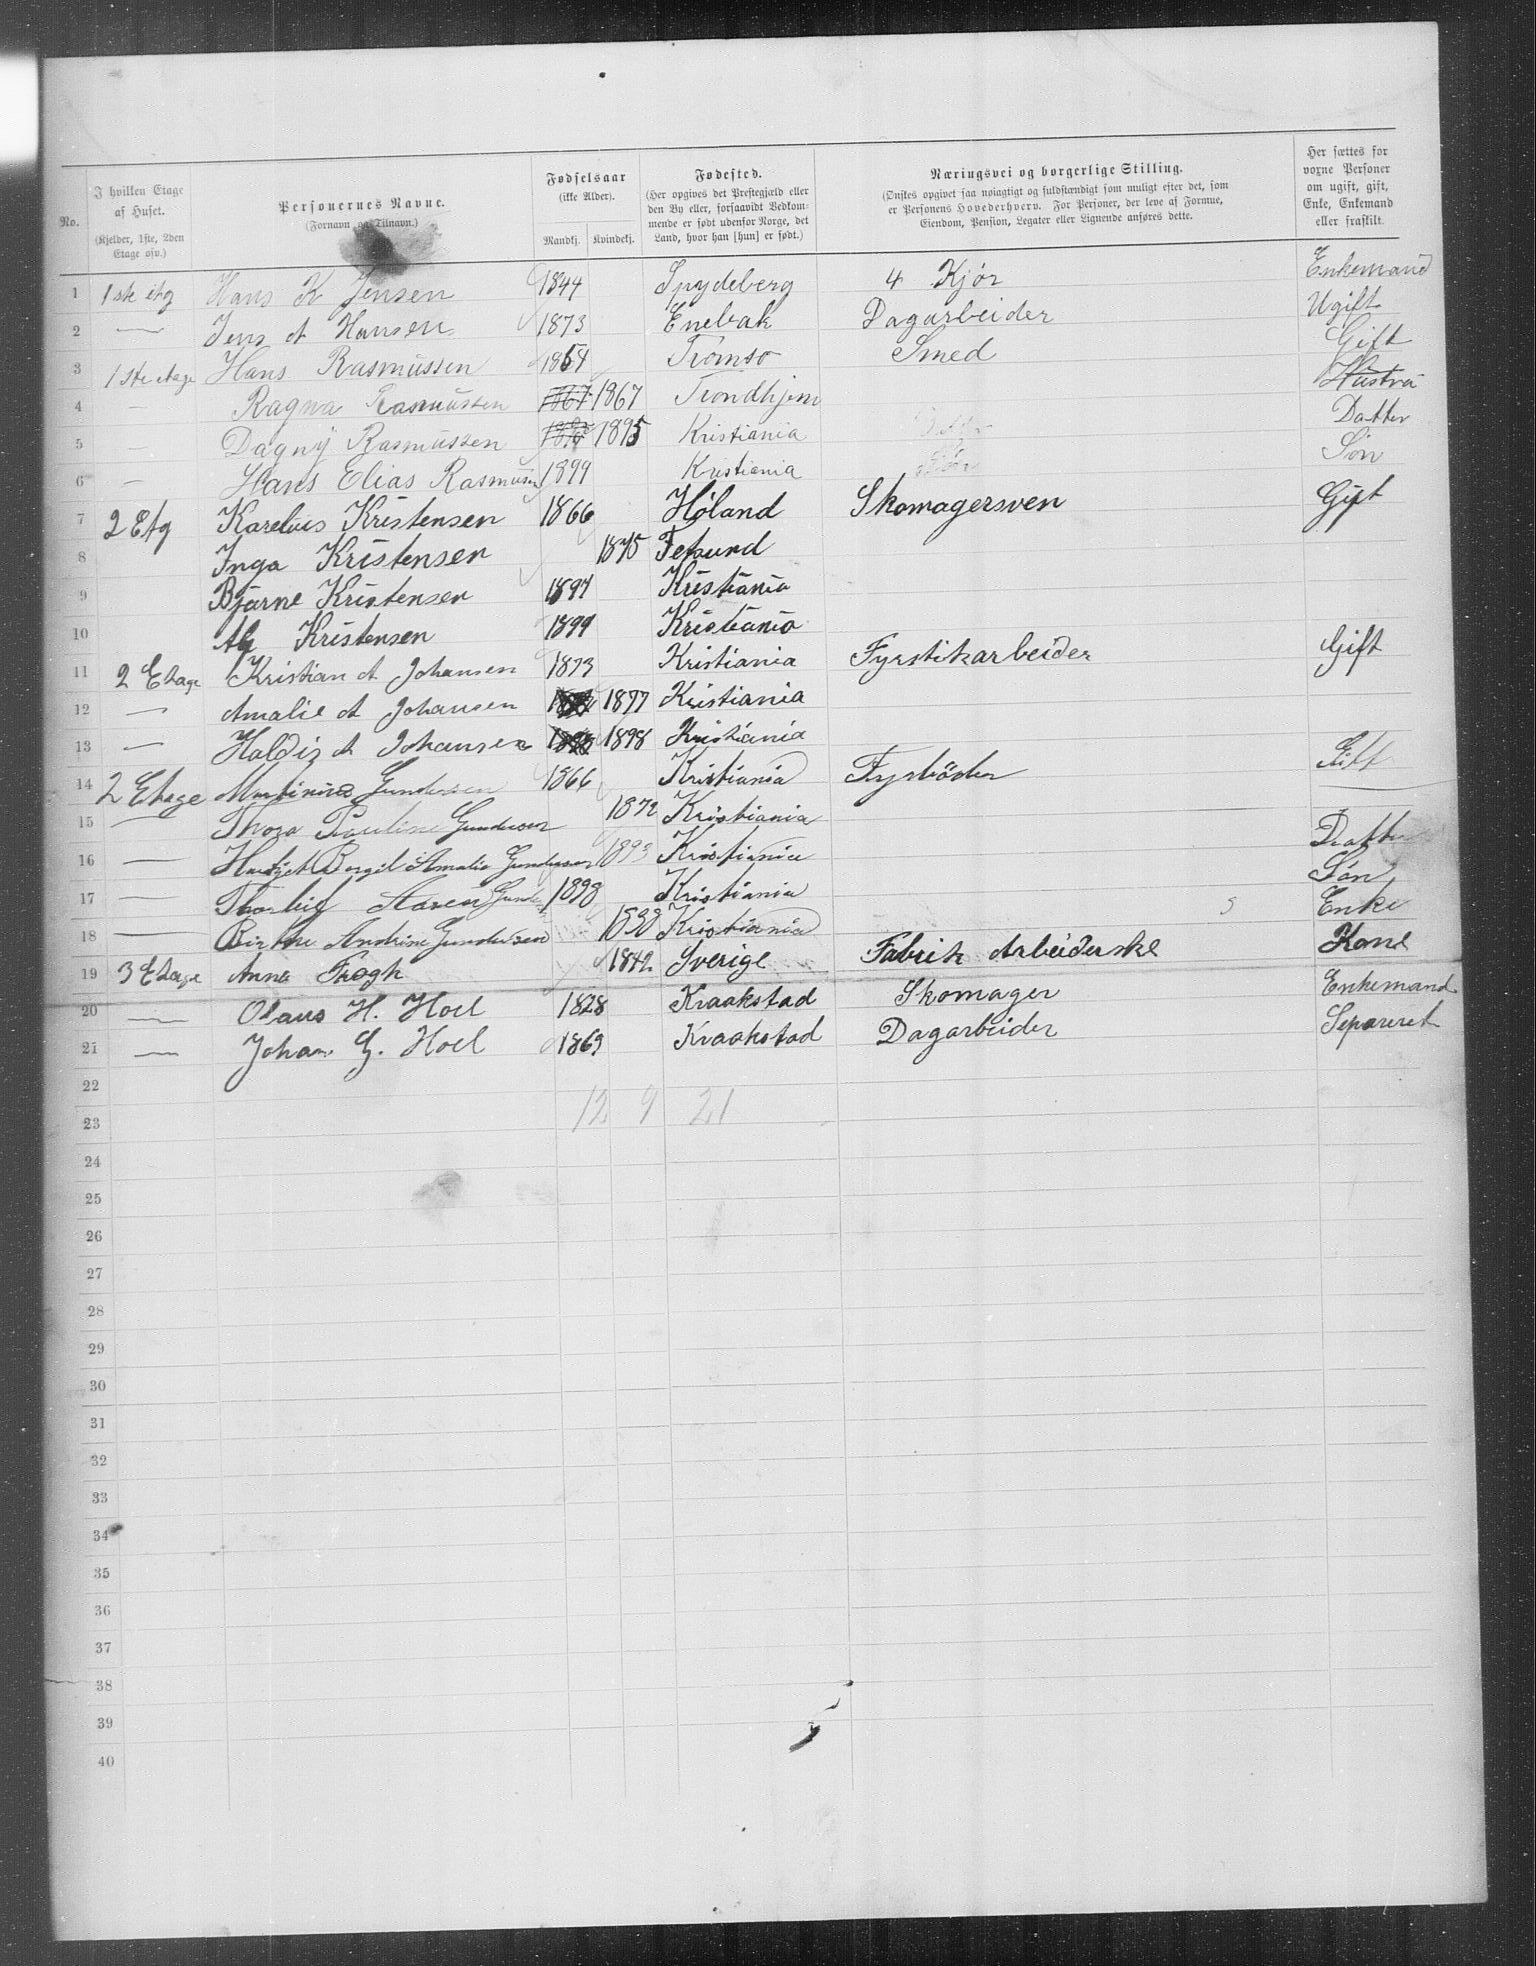 No. I hvilken Etage af Huset. (Kjelder, 1ste, 2den Etage osv.) Personernes Navne. (Fornavn og Tilnavn.) Fødselsaar (ikke Alder). Mandkj. Kvindekj. Fødested. (Her opgives det Prestegjæld eller den By eller, forsaavidt Vedkommende er født udenfor Norge, det Land, hvor han [hun] er født.) Næringsvei og borgerlige Stilling. (Ønskes opgivet saa nøiagtigt og fuldstændigt som muligt efter det, som er Personens Hovederhverv. For Personer, der leve af Formue, Eiendom, Pension, Legater eller Lignende anføres dette. Her sættes for vorne Personer om ugift, gift, Enke, Enkemand eller fraskilt.
1 1ste etg Hans K Jensen 1844 Spydeberg 4 Kjør Enkemand
2 — Jens A Hansen 1873 Enebak Dagarbeider Ugift
3 1ste etage Hans Rasmussen 1864 Tromsø Smed Gift
4 — Ragna Rasmussen 1867 1867 Trondhjem Hustru
5 — Dagny Rasmussen 1895 Kristiania Datter
6 — Hans Elias Rasmussen 1899 Kristiania Søn
7 2 Etg Karelius Kristensen 1866 Høland Skomagersven Gift
8 Inga Kristensen 1875 Fetsund
9 Bjarne Kristensen 1897 Kristiania
10 Kristensen 1899 Kristiania
11 2 Etage Kristian A Johansen 1873 Kristiania Fyrstikarbeider Gift
12 — Amalie A Johansen 1877 Kristiania
13 — Haldis A Johansen 1898 Kristiania
14 2 Etage Martinius Gundersen 1866 Kristiania Fyrbøder Gift
15 — Thora Pauline Gundersen 1872 Kristiania
16 — Bergit Amalie Gundersen 1893 Kristiania Datter
17 — Gunde 1898 Kristiania Søn
18 — Birthe Andrine Gundersen Kristiania Enke
19 3 Etage Anna Frogh 1842 Sverige Fabrik Arbeiderske Kone
20 — Olaus H. Hoel 1828 Kraakstad Skomager Enkemand
21 — Johan G. Hoel 1863 Kraakstad Dagarbeider Separeret
22
23 12 9 21
24
25
26
27
28
29
30
31
32
33
34
35
36
37
38
39
40